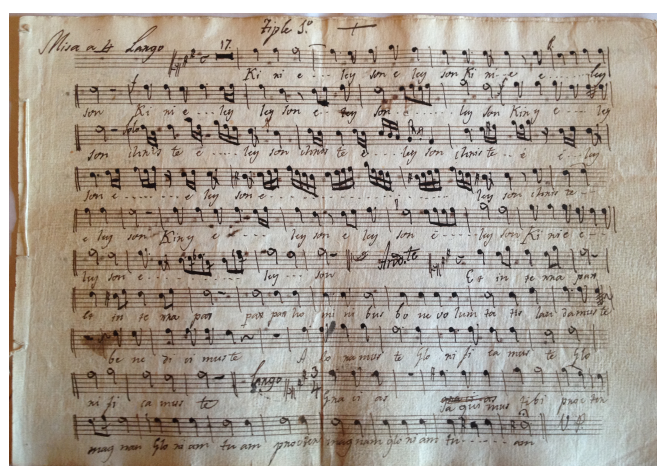 Tiple 1º
Misa a 4 Largo
17.
Ki ri e - - - ley son e ley son Ki ri - e e - - - - ley
son Ki ri e - - - - ley ley son e - - ley son e - - - - ley son Kiry e - - ley
solo
son christe e - - - - - ley son christe e - - - ley son christe - - e e - - - - ley
son e - - - - e ley son e - - - - - - - - ley son christe - -
e ley son Kiry e - - - - - ley son e ley son e - - - - ley son Ki ri e e - - -
ley son e - - - - - ley - - son And.te Et in te rra pax
et in te rra pax pax pax ho mi ni bus bo ne vo lun ta tis lau damus te
be ne di ci mus te A do ra mus te Glo ri fi ca mus te Glo
ri fi ca mus te Largo 3/4 Gra ci as
agi mus tibi
mag nan glo ri am tu am propter magnam glo ri am tu - - - - - am